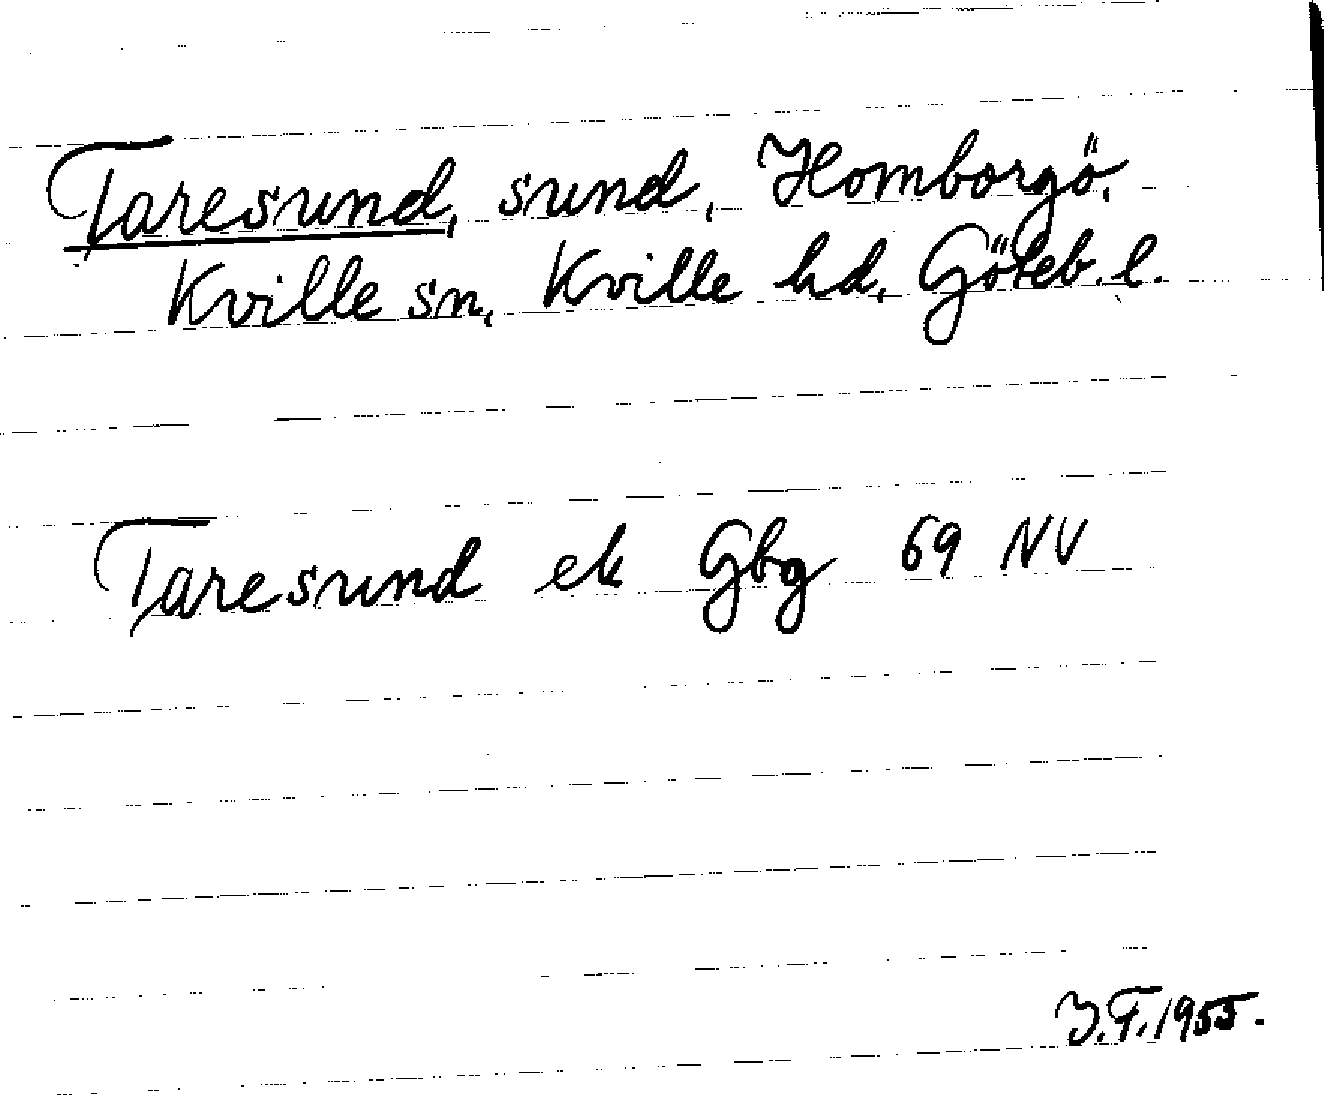 Taresund, sund, Homborgö,
Kville sn, Kville hd, Göteb. l.
Taresund ek Gbg 69 NV
J.F. 1955.